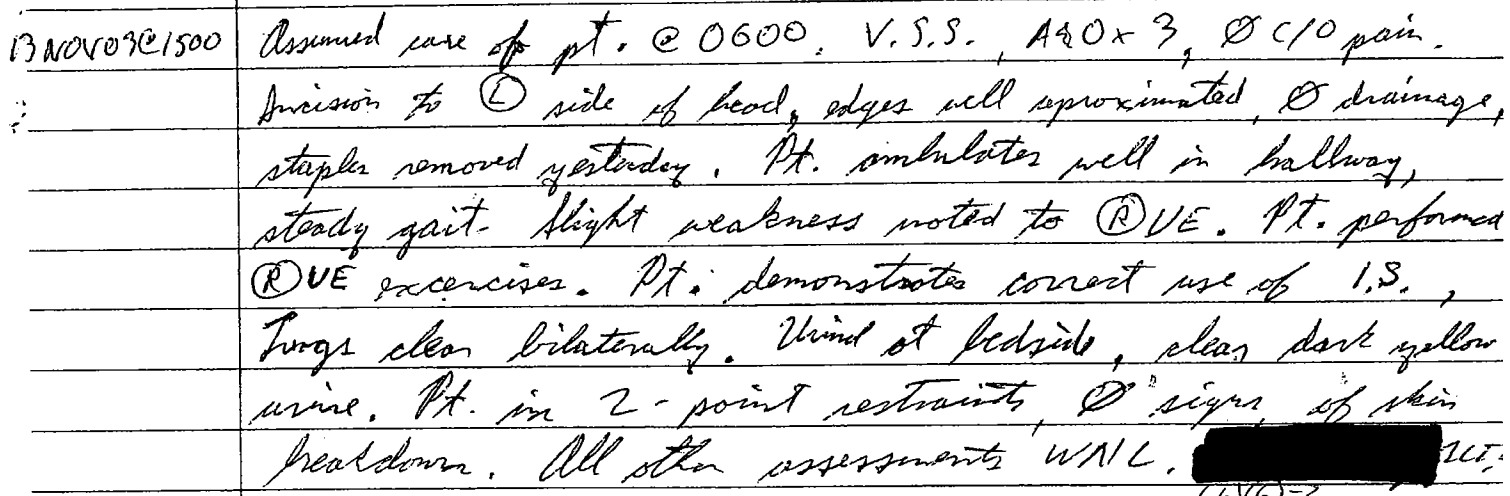 13NOV03@1500 Assumed care of pt. @ 0600. V.S.S., A&Ox3, Ø C/O pain.
Incision to Ⓛ side of head, edges well aproximated, Ø drainage,
staples removed yesterday. Pt. ambulates well in hallway,
steady gait. Slight weakness noted to ⓇUE. Pt. performed
ⓇUE excercises. Pt. demonstrates correct use of I.S.,
Lungs clear bilaterally. Urinal at bedside, clear dark yellow
urine. Pt. in 2-point restraints, Ø signs of skin
breakdown. All other assessments WNL.